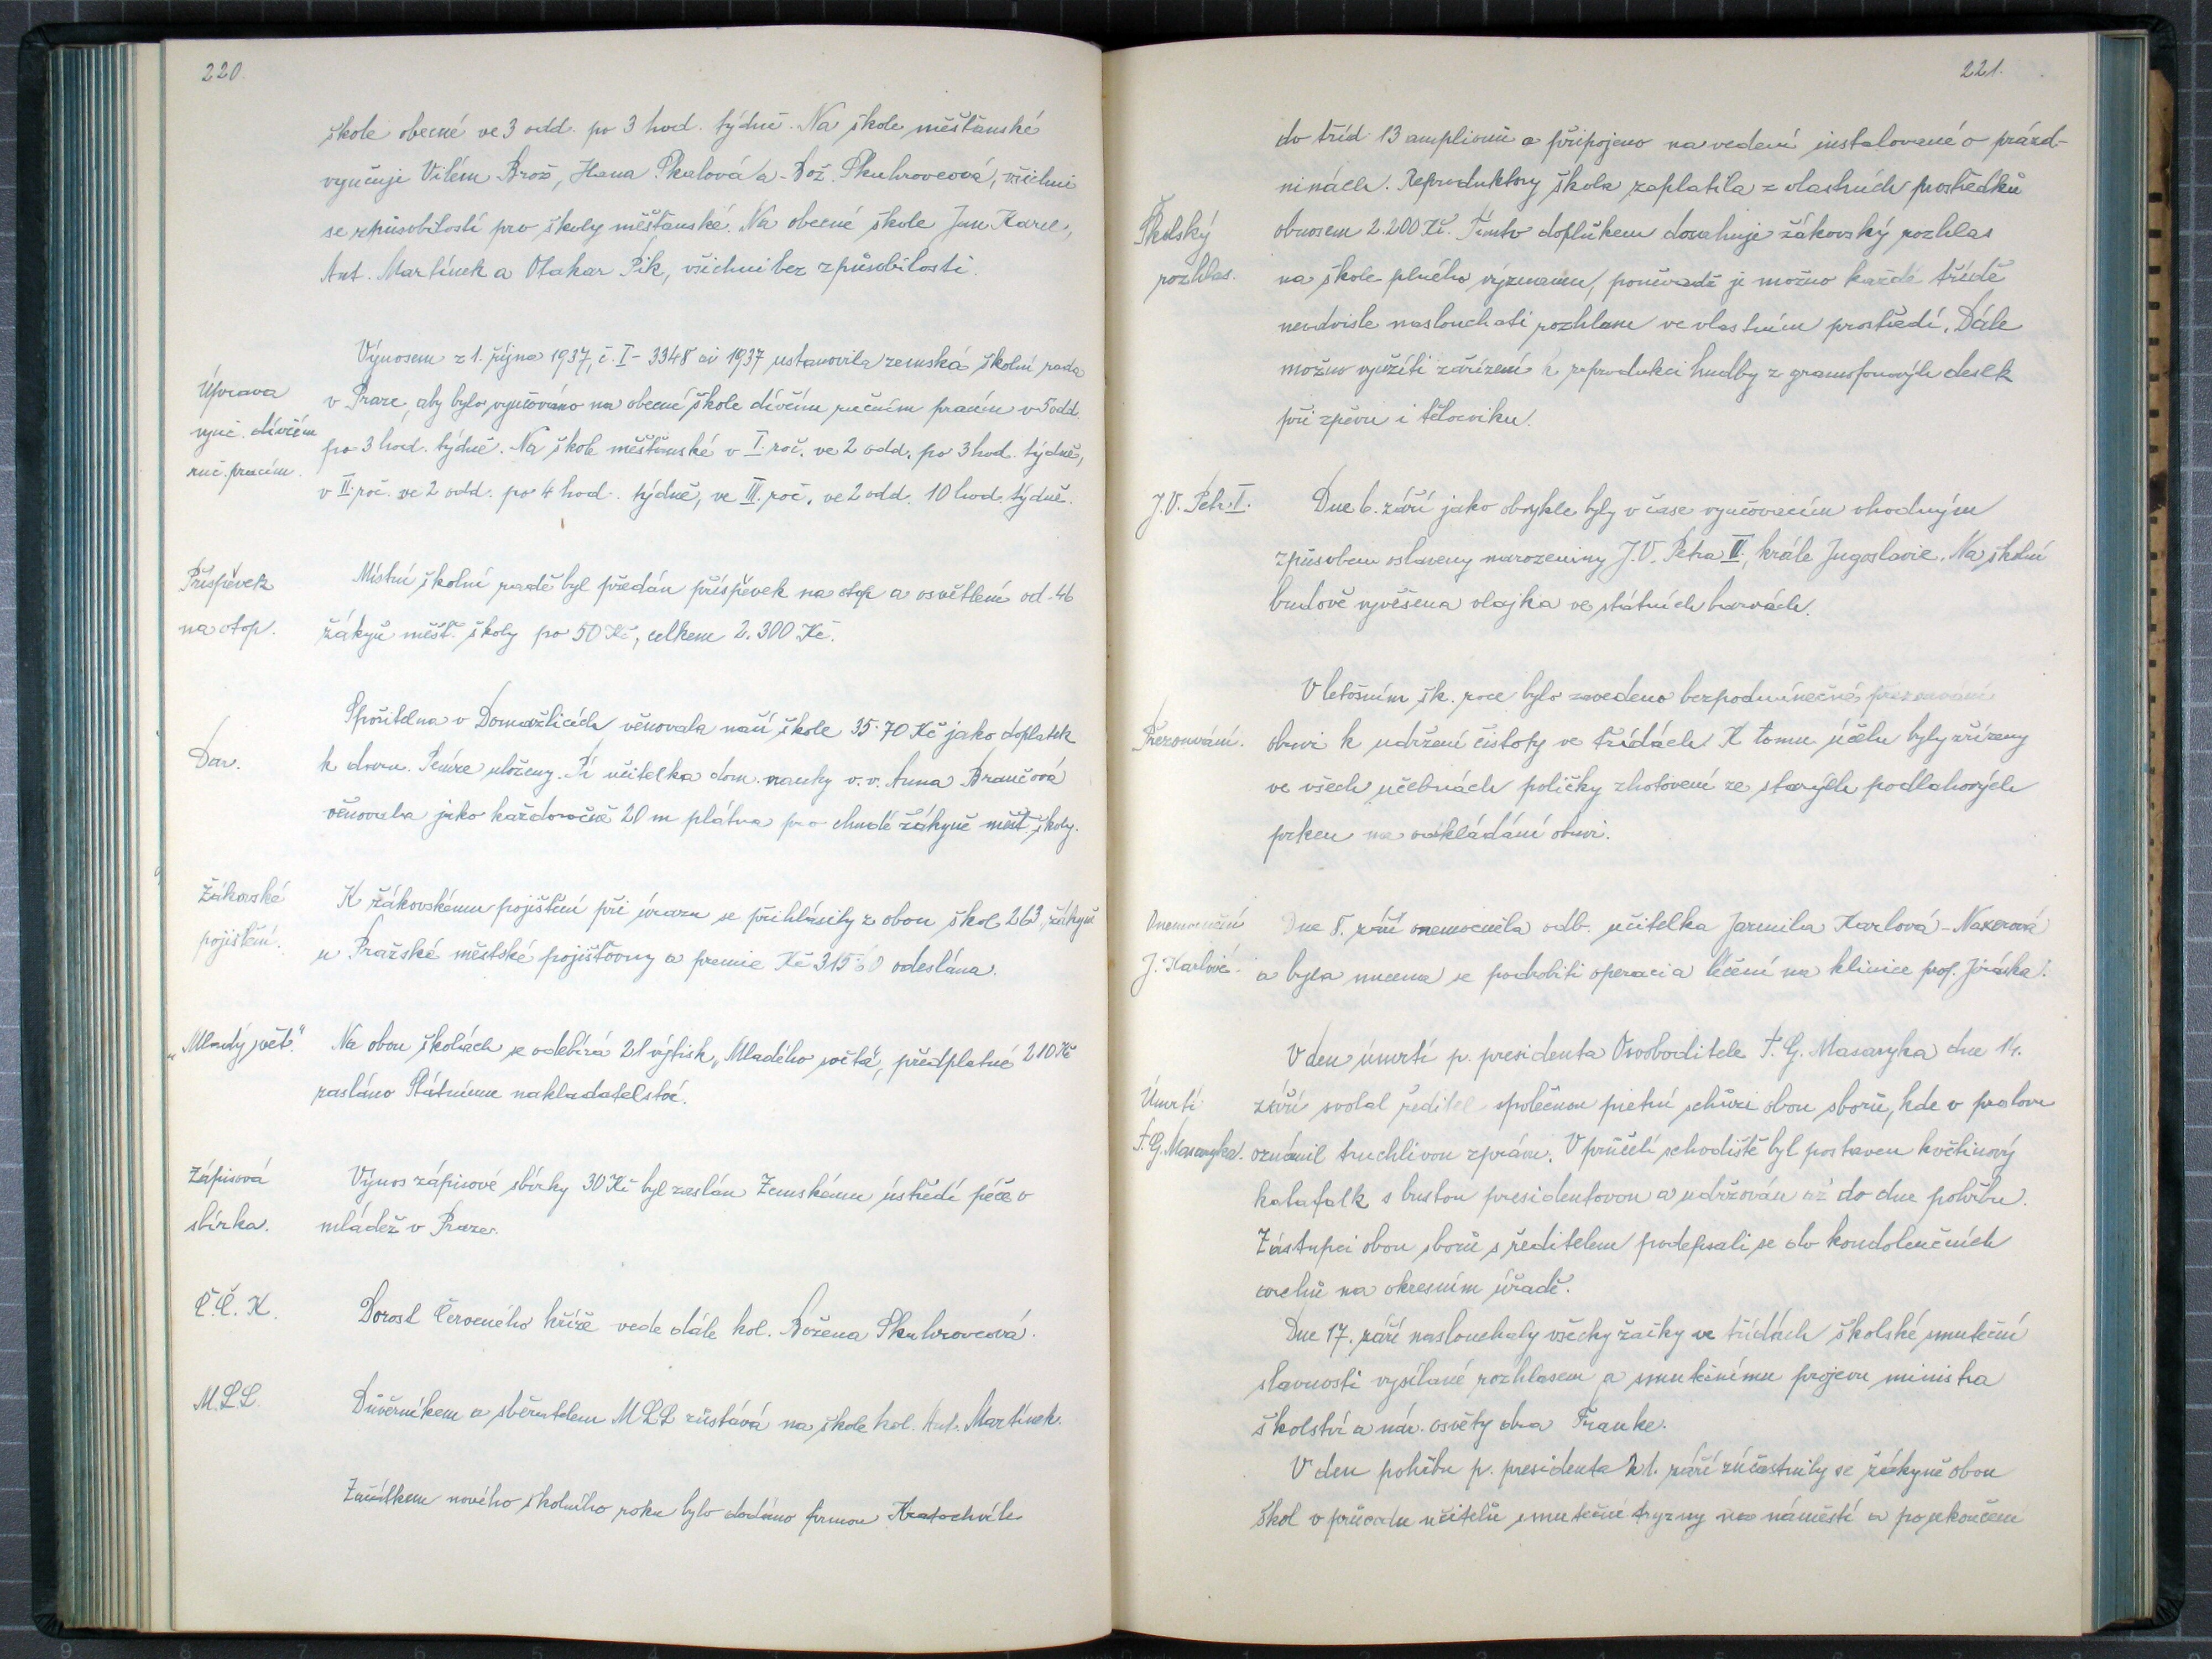 220.
škole obecné ve 3 odd. po 3 hod. týdně. Na škole měšťanské
vyučuje Vilém Brož, Hana Skalová a Bož. Skuhrovcová, všichni
se způsobilostí pro školy měšťanské. Na obecné škole Jan Karel,
Ant. Martínek a Otakar Pik, všichni bez způsobilosti.
Úprava
vyuč. dívčím
ruč. pracím.
Výnosem z 1. října 1937, č. I - 3348 ai 1937 ustanovila zemská školní rada
v Praze, aby bylo vyučováno na obecné škole dívčím ručním pracím v 5 odd.
po 3 hod. týdně. Na škole měšťanské v I. roč. ve 2 odd. po 3 hod. týdně,
v II. roč. ve 2 odd. po 4 hod. týdně, ve III. roč. ve 2 odd. 10 hod. týdně.
Příspěvek
na otop.
Místní školní radě byl předán příspěvek na otop a osvětlení od 46
žákyň měšť. školy po 50 Kč, celkem 2.300 Kč.
Dar.
Spořitelna v Domažlicích věnovala naší škole 35·70 Kč jako doplatek
k daru. Peníze uloženy. Pí učitelka dom. nauky v. v. Anna Brančová
věnovala jako každoročně 20 m plátna pro chudé žákyně měšť. školy.
Žákovské
pojištění.
K žákovskému pojištění při úrazu se přihlásily z obou škol 263 žákyň
u Pražské městské pojišťovny a premie Kč 315·60 odeslána.
„Mladý svět."
Na obou školách se odebírá 21 výtisk „Mladého světa", předplatné 210 Kč
zasláno Státnímu nakladatelství.
Zápisová
sbírka.
Výnos zápisové sbírky 30 Kč byl zaslán Zemskému ústředí péče o
mládež v Praze.
Č.Č.K.
Dorost Červeného kříže vede dále kol. Božena Skuhrovcová.
M.L.L.
Důvěrníkem a sběratelem MLL zůstává na škole kol. Ant. Martínek.
Začátkem nového školního roku bylo dodáno firmou Kratochvíle
221.
do tříd 13 amplionů a připojeno na vedení instalované o prázd-
ninách. Reproduktory škola zaplatila z vlastních prostředků
Školský
rozhlas.
obnosem 2.200 Kč. Tímto doplňkem dosahuje žákovský rozhlas
na škole plného významu, poněvadž je možno každé třídě
neodvisle naslouchati rozhlasu ve vlastním prostředí. Dále
možno využíti zařízení k reprodukci hudby z gramofonových desek
při zpěvu i tělocviku.
J.V. Petr II.
Dne 6. září jako obvykle byly v čase vyučovacím vhodným
způsobem oslaveny narozeniny J.V. Petra II., krále Jugoslavie. Na školní
budově vyvěšena vlajka ve státních barvách.
Přezouvání.
V letošním šk. roce bylo zavedeno bezpodmínečné přezouvání
obuvi k udržení čistoty ve třídách. K tomu účelu byly zřízeny
ve všech učebnách poličky zhotovené ze starých podlahových
prken na odkládání obuvi.
Onemocnění
J. Karlové.
Dne 8. září onemocněla odb. učitelka Jarmila Karlová - Naxerová
a byla nucena se podrobiti operaci a léčení na klinice prof. Jiráska.
Úmrtí
T. G. Masaryka.
V den úmrtí p. presidenta Osvoboditele T. G. Masaryka dne 14.
září svolal ředitel společnou pietní schůzi obou sborů, kde v proslovu
oznámil truchlivou zprávu. V průčelí schodiště byl postaven květinový
katafalk s bustou presidentovou a udržován až do dne pohřbu.
Zástupci obou sborů s ředitelem podepsali se do kondolenčních
archů na okresním úřadě.
Dne 17. září naslouchaly všechy žačky ve třídách školské smuteční
slavnosti vysílané rozhlasem a smutečnímu projevu ministra
školství a nár. osvěty dra Franke.
V den pohřbu p. presidenta 21. září zúčastnily se žákyně obou
škol v průvodu učitelů smuteční tryzny na náměstí a po ukončení